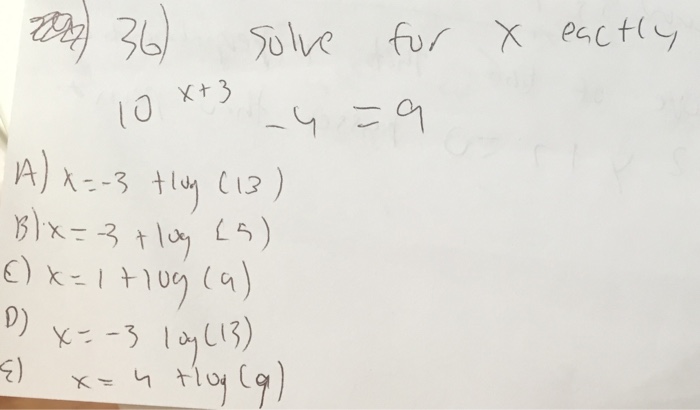 36) Solve for x eactly
10^(x+3) - 4 = 9
A) x = -3 + log (13)
B) x = -3 + log (5)
C) x = 1 + log (9)
D) x = -3 log (13)
E) x = 4 + log (9)